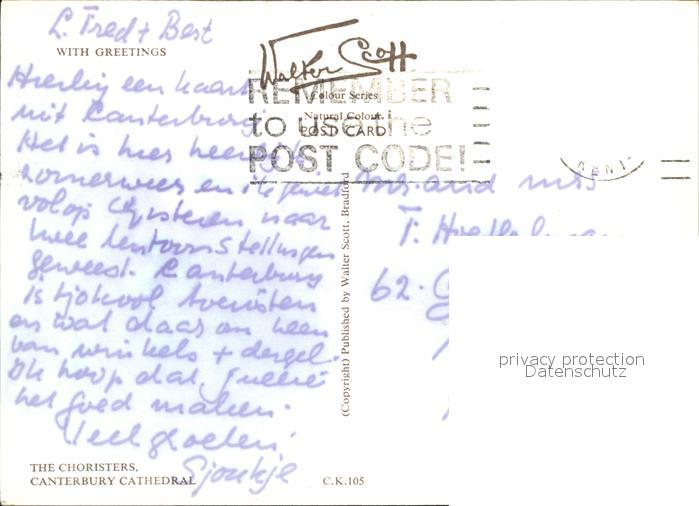 L. Fred + Best
WITH GREETINGS
Hierbij een kaart
uit Canterbury
Het is hier heerlijk
zomerweer en ik geniet
volop. Gisteren naar
twee tentoonstellingen
geweest. Canterbury
is tjokvol toeristen
en wat daar om heen
van winkels + dergel.
Ik hoop dat jullie
het goed maken.
Veel groeten.
Sjoukje
THE CHORISTERS,
CANTERBURY CATHEDRAL
C.K.105
Walter Scott
Colour Series
Natural Colour
POST CARD
REMEMBER
to use the
POST CODE!
KENT
(Copyright) Published by Walter Scott, Bradford
Mr. and mrs
T.
62.
privacy protection
Datenschutz